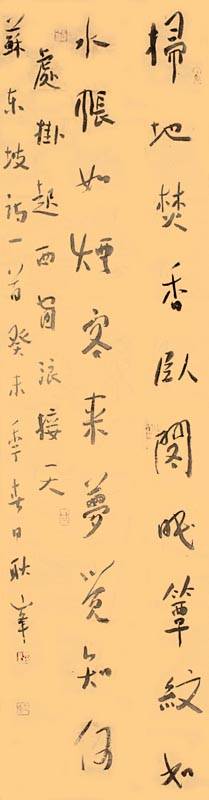 掃地焚香臥閣眠簟紋如
水帳如煙客来夢覺知何
處掛起西窗浪接天
蘇东坡詩一首癸未年春日耿峯